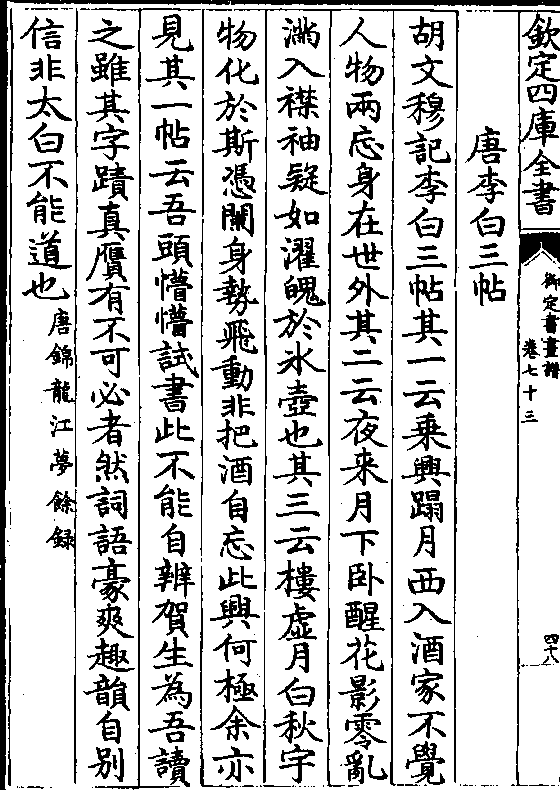 欽定四庫全書
御定書畫譜
卷七十三
四十八
唐李白三帖
胡文穆記李白三帖其一云乗興蹋月西入酒家不覺
人物兩忘身在世外其二云夜来月下卧醒花影零亂
滿入襟袖疑如濯魄於氷壺也其三云樓虛月白秋宇
物化於斯憑闌身勢飛動非把酒自忘此興何極余亦
見其一帖云吾頭懵懵試書此不能自辨賀生為吾讀
之雖其字蹟真贋有不可必者然詞語豪爽趣韻自别
信非太白不能道也唐錦龍江夢餘録